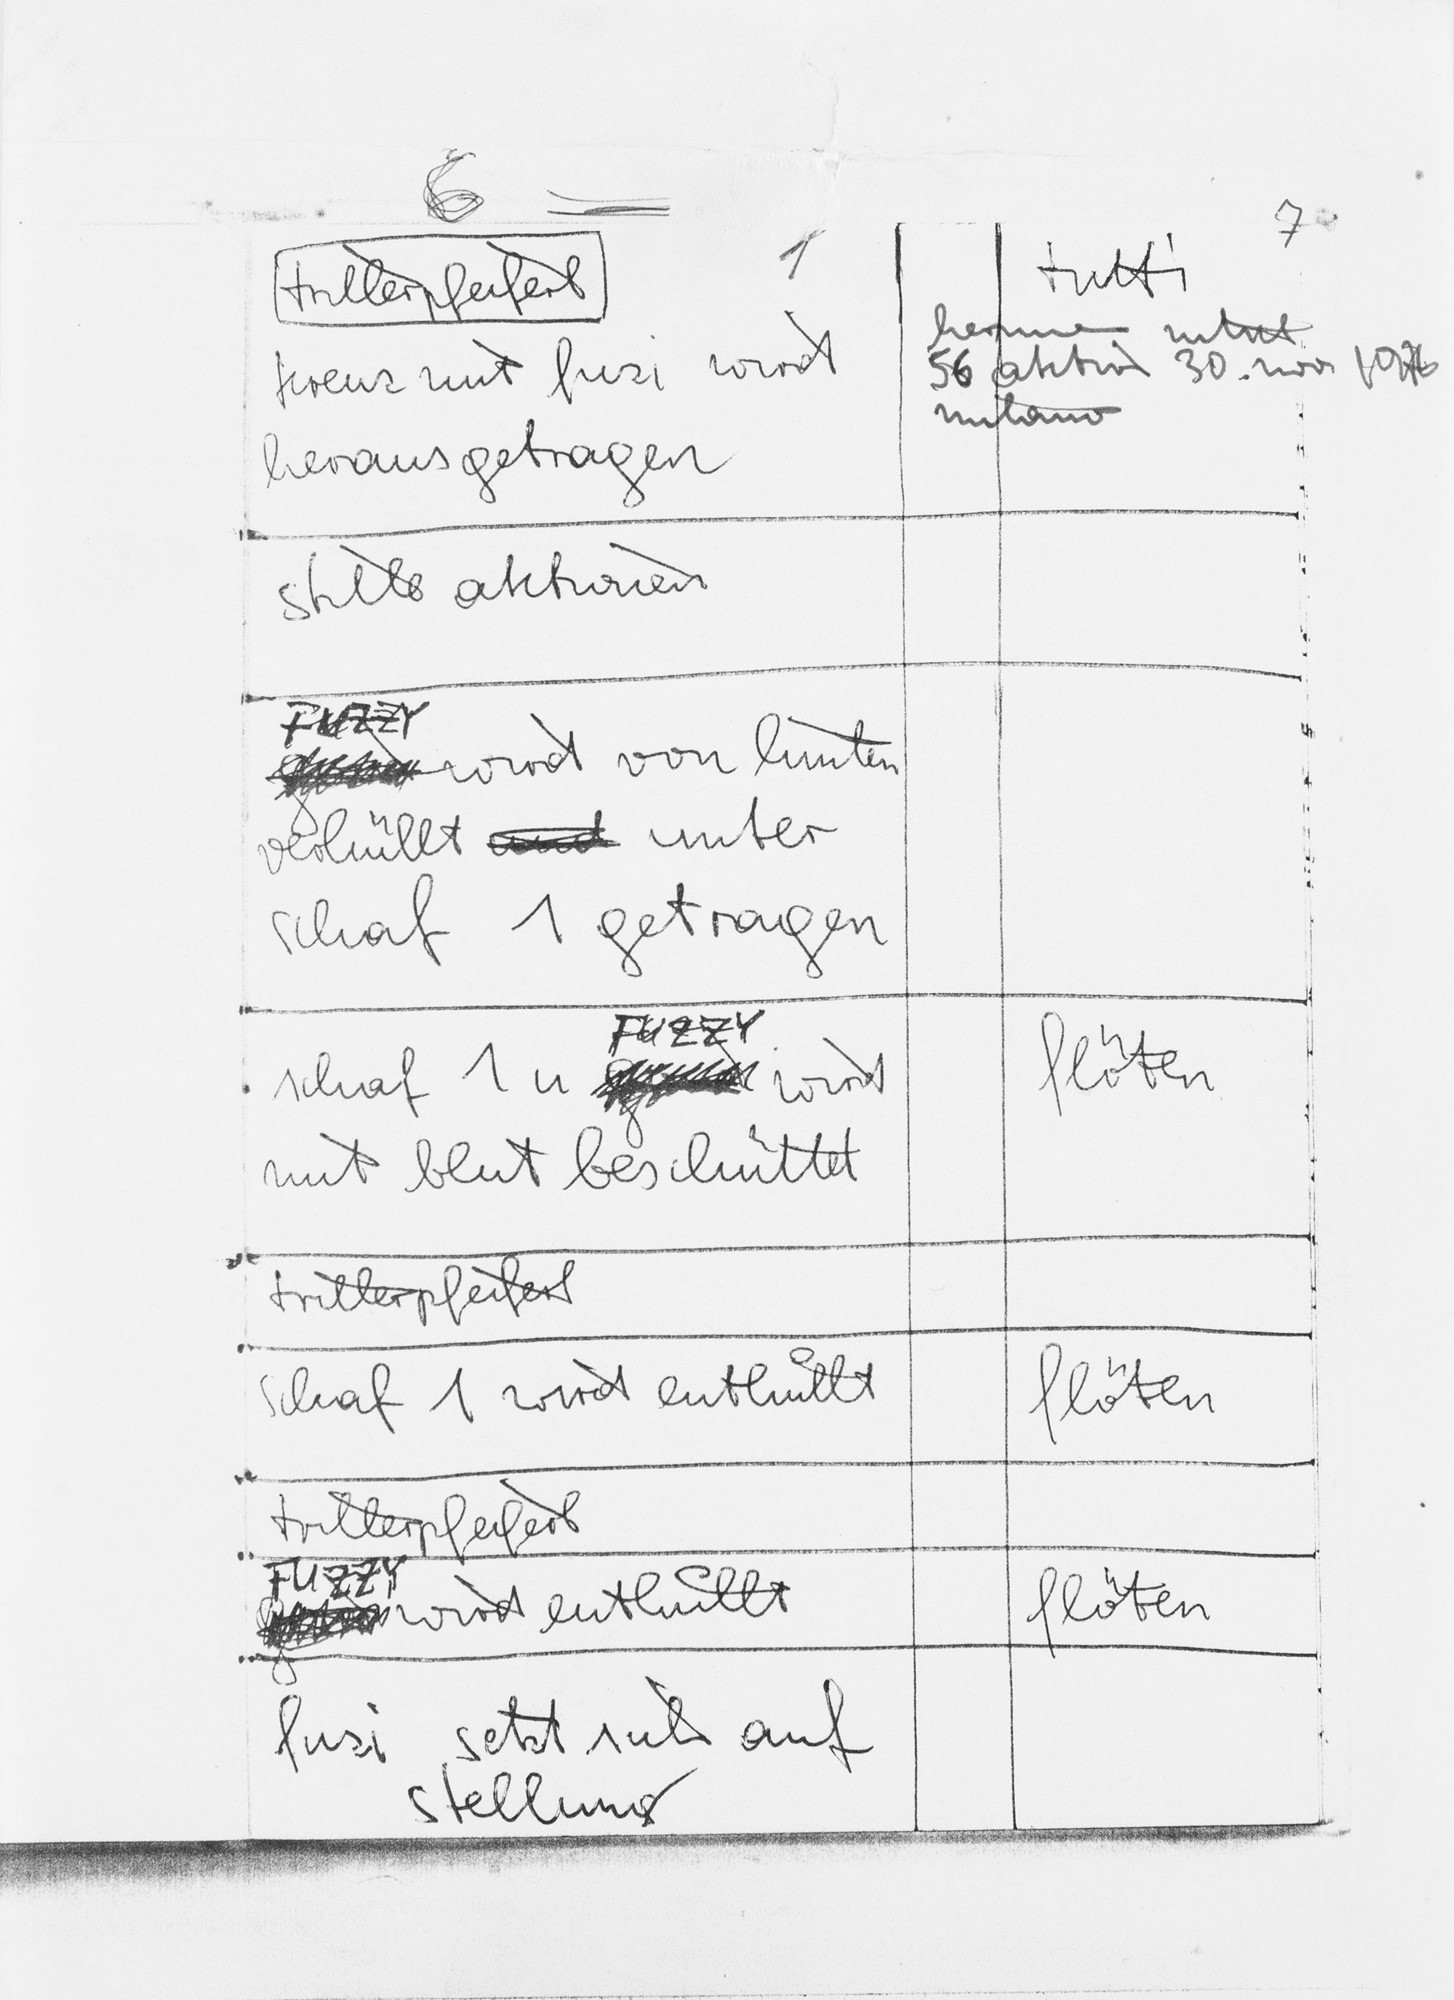 6
7
trillerpfeiferl
1
tutti
kreuz mit fuzi wird
hermann nitsch
56 aktion 30. nov 1976
milano
herausgetragen
stille aktionen
FUZZY
wird von hinten
verhüllt und unter
schaf 1 getragen
FUZZY
schaf 1 u wird
flöten
mit blut beschüttet
trillerpfeiferl
schaf 1 wird enthüllt
flöten
trillerpfeiferl
FUZZY
wird enthüllt
flöten
fuzi setzt sich auf
stellung